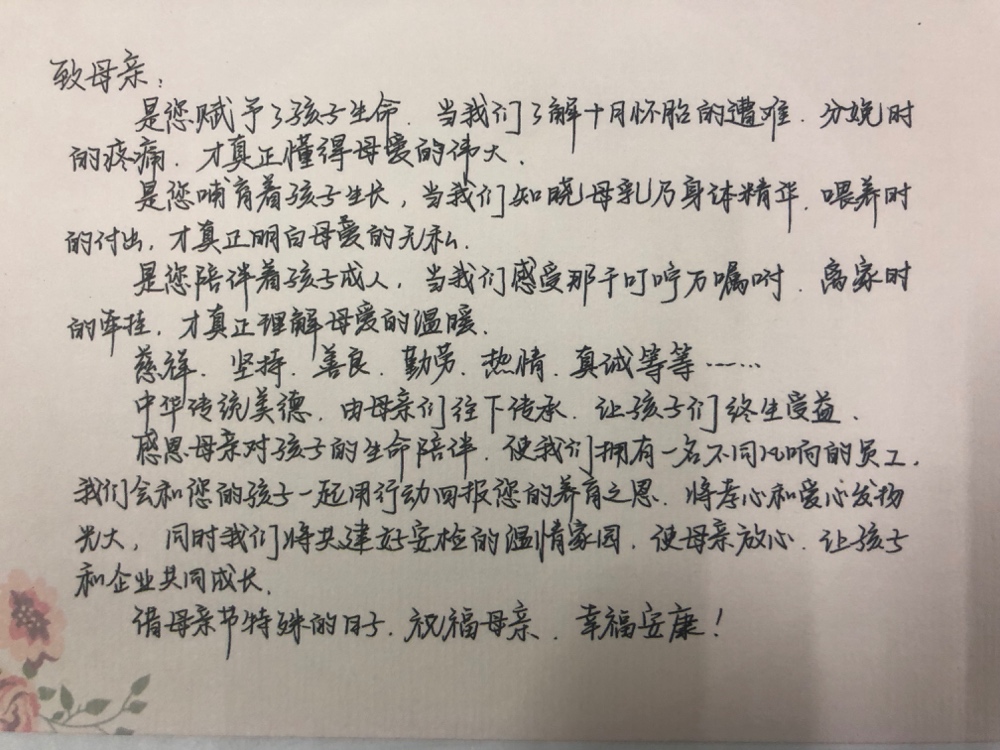 致母亲：
是您赋予了孩子生命．当我们了解十月怀胎的遭难．分娩时
的疼痛．才真正懂得母爱的伟大．
是您哺育着孩子生长，当我们知晓母乳乃身体精华．喂养时
的付出，才真正明白母爱的无私．
是您陪伴着孩子成人，当我们感受那千叮咛万嘱咐．离家时
的牵挂，才真正理解母爱的温暖．
慈祥．坚持．善良．勤劳．热情．真诚等等……
中华传统美德．由母亲们往下传承．让孩子们终生受益．
感恩母亲对孩子的生命陪伴．使我们拥有一名不同凡响的员工．
我们会和您的孩子一起用行动回报您的养育之恩．将孝心和爱心发扬
光大，同时我们将共建好安检的温情家园．使母亲放心．让孩子
和企业共同成长．
借母亲节特殊的日子．祝福母亲．幸福安康！